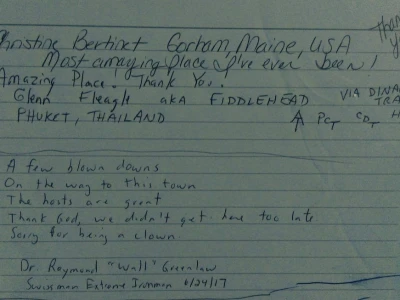 Christine Bertinet Gorham, Maine, USA
Most amazing place I've ever been!
Amazing Place! Thank You.
Glenn Fleagle aka FIDDLEHEAD
PHUKET, THAILAND
VIA DINA
TRA
PCT CDT H
A few blown downs
On the way to this town
The hosts are great
Thank God, we didn't get here too late
Sorry for being a clown
Dr Raymond "Wall" Greenlaw
Swissman Extreme Ironman 6/24/17